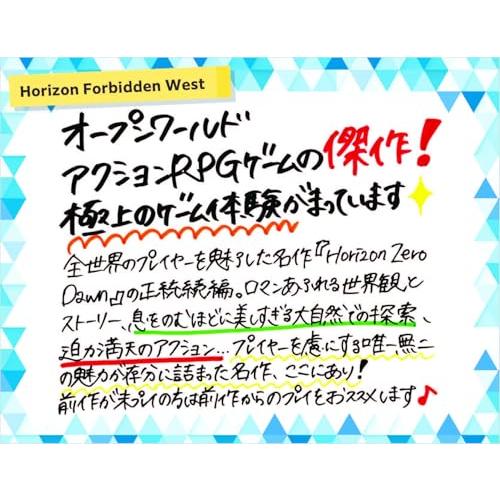 Horizon Forbidden West
オープンワールド
アクションRPGゲームの傑作!
極上のゲーム体験がまっています
全世界のプレイヤーを魅了した名作『Horizon Zero
Dawn』の正統続編。ロマンあふれる世界観と
ストーリー、息をのむほどに美しすぎる大自然での探索、
迫力満天のアクション...プレイヤーを虜にする唯一無二
の魅力が存分に詰まった名作、ここにあり!
前作が未プレイの方は前作からのプレイをおススメします♪